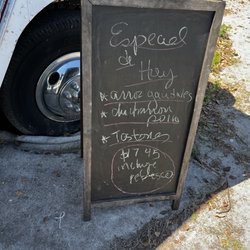 Especial
de
Hoy
* arroz gandules
* chicharron
pollo
* Tostones
$7.95
incluye
refresco